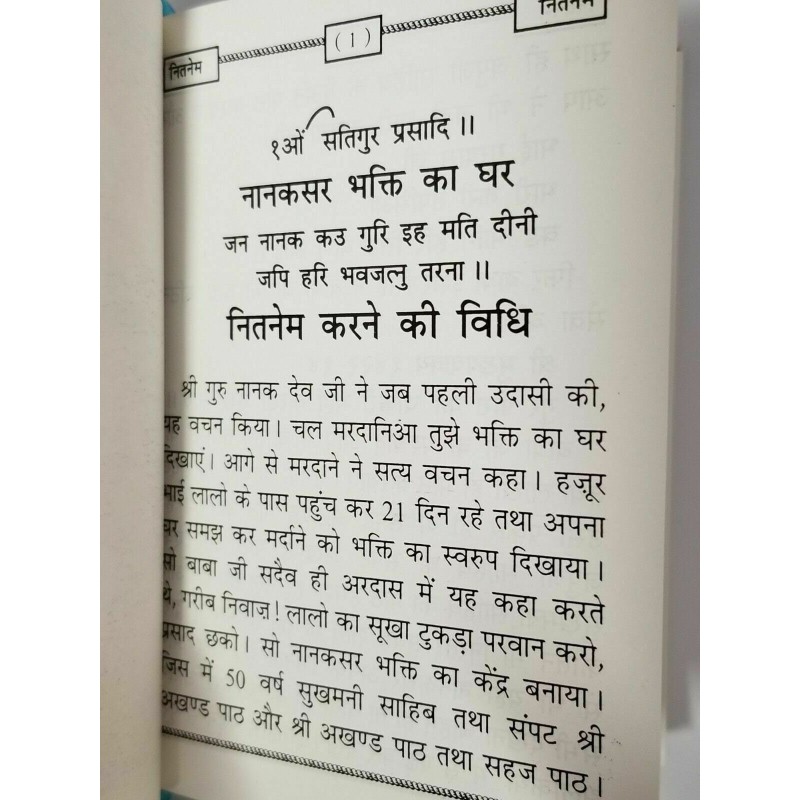 नितनेम
(1)
नितनेम
१ओं सतिगुर प्रसादि ।।
नानकसर भक्ति का घर
जन नानक कउ गुरि इह मति दीनी
जपि हरि भवजलु तरना ।।
नितनेम करने की विधि
श्री गुरु नानक देव जी ने जब पहली उदासी की,
यह वचन किया। चल मरदानिआ तुझे भक्ति का घर
दिखाएं। आगे से मरदाने ने सत्य वचन कहा। हज़ूर
भाई लालो के पास पहुंच कर 21 दिन रहे तथा अपना
घर समझ कर मर्दाने को भक्ति का स्वरुप दिखाया।
सो बाबा जी सदैव ही अरदास में यह कहा करते
थे, गरीब निवाज़! लालो का सूखा टुकड़ा परवान करो,
प्रसाद छको। सो नानकसर भक्ति का केंद्र बनाया।
जिस में 50 वर्ष सुखमनी साहिब तथा संपट श्री
अखण्ड पाठ और श्री अखण्ड पाठ तथा सहज पाठ।